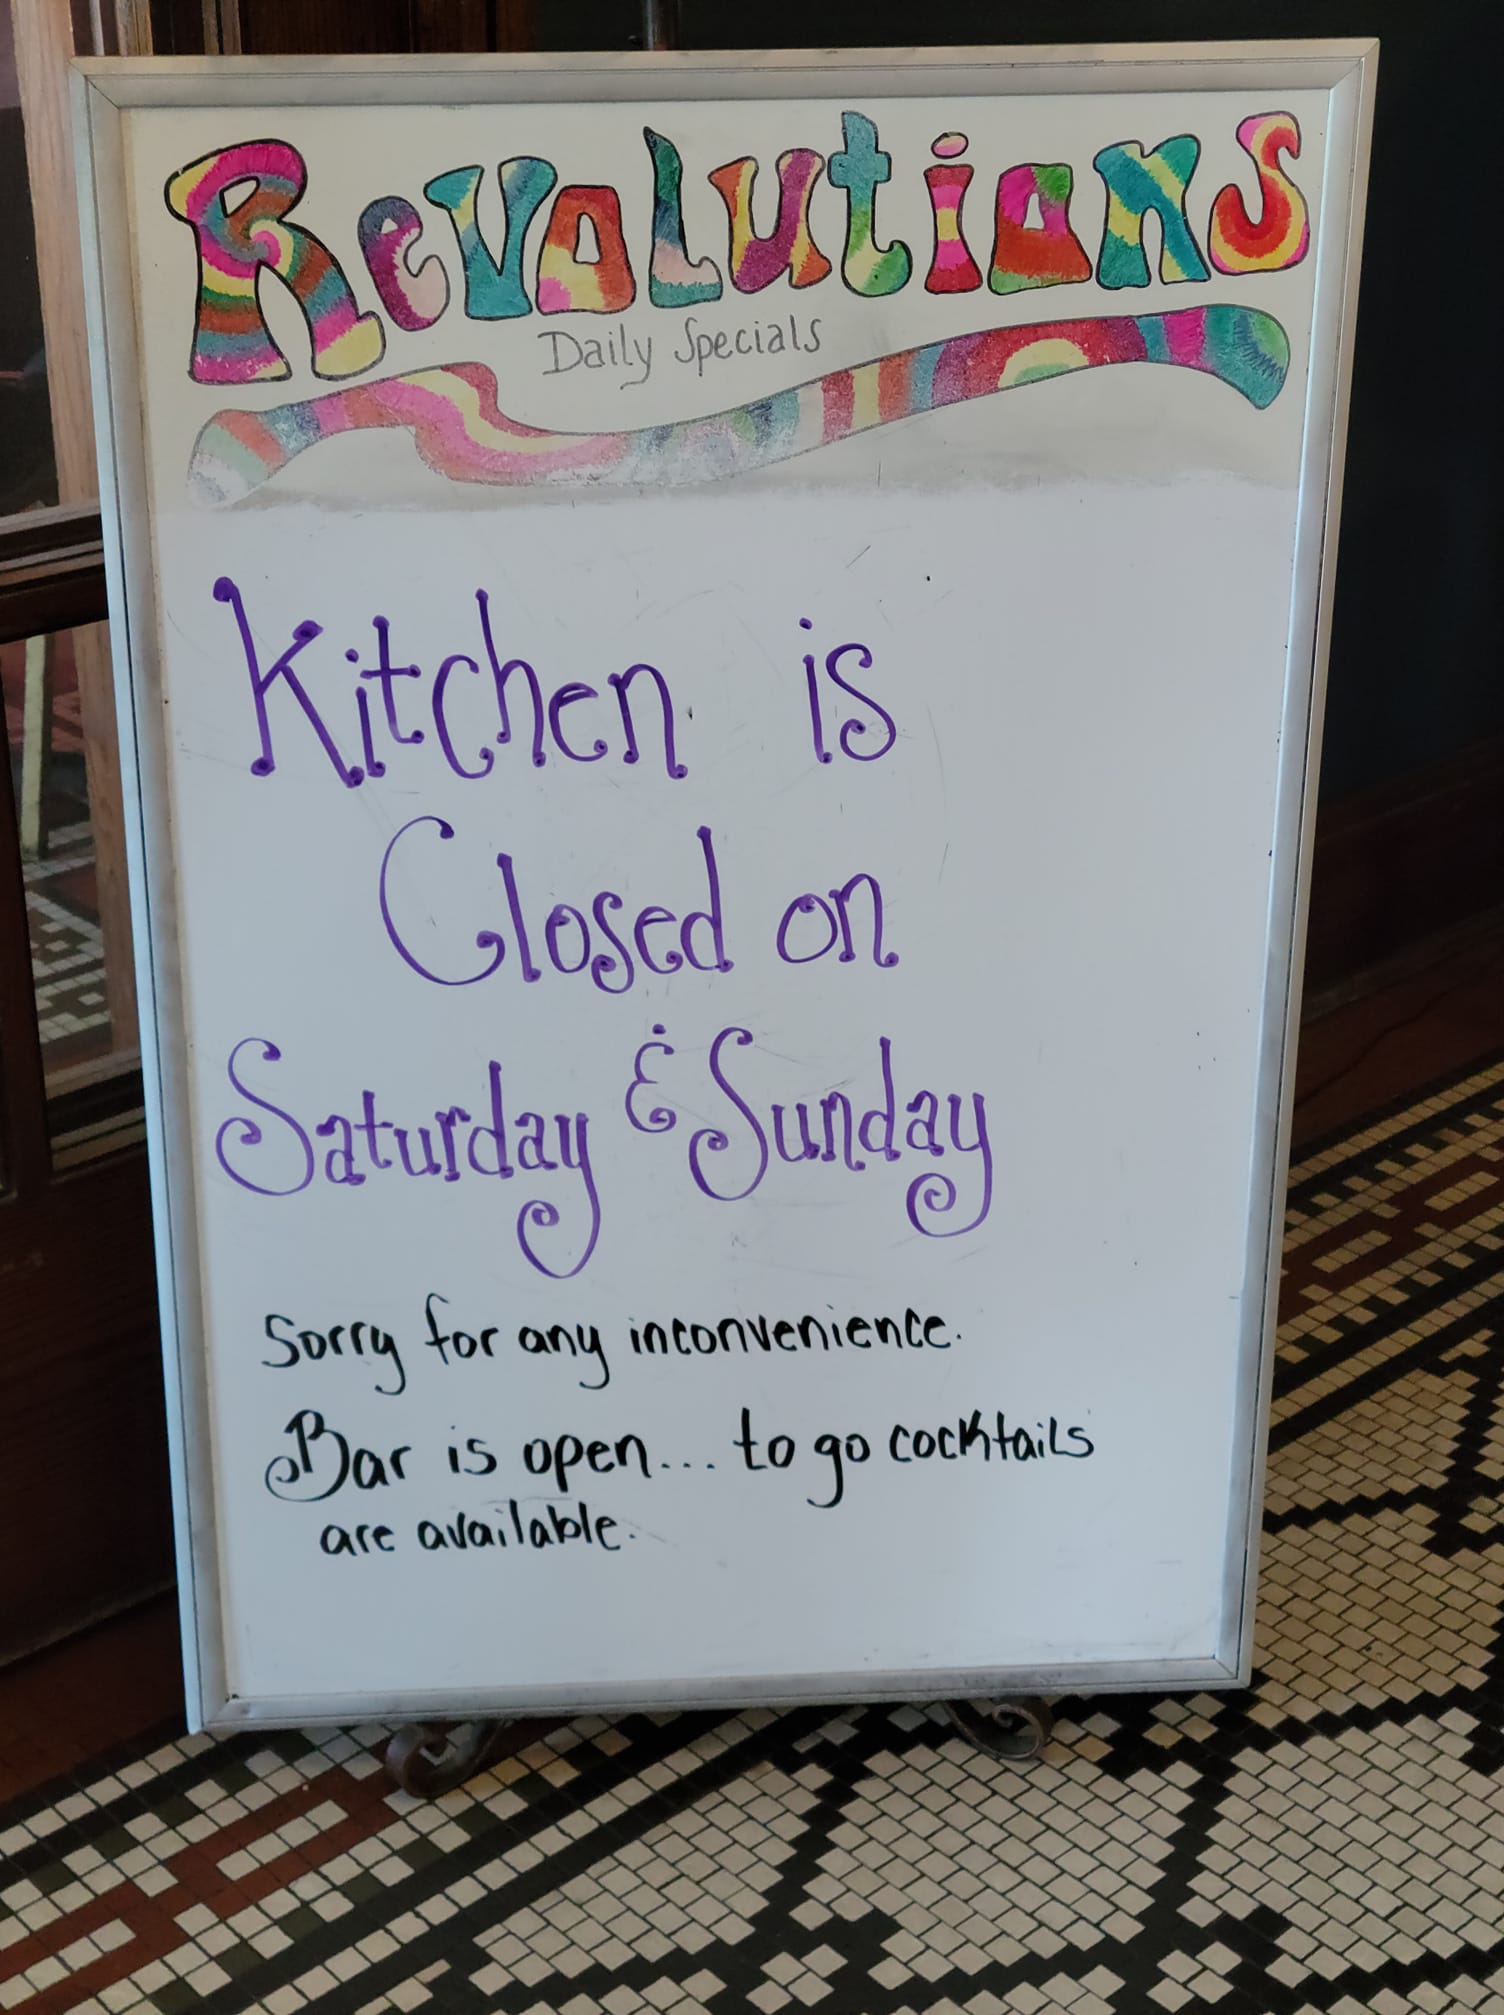 Revolutions
Daily Specials
Kitchen is
Closed on
Saturday & Sunday
Sorry for any inconvenience.
Bar is open... to go cocktails
are available.